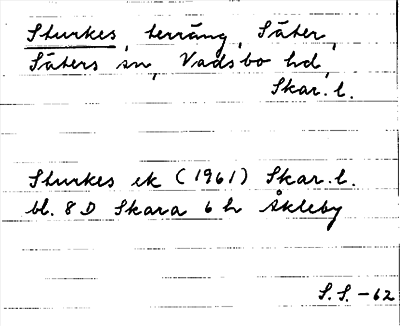 Sturkes, terräng, Säter,
Säters sn, Vadsbo hd,
Skar. l.
Sturkes ek (1961) Skar. l.
bl. 8 D Skara 6 h Åkleby
S. S. -62